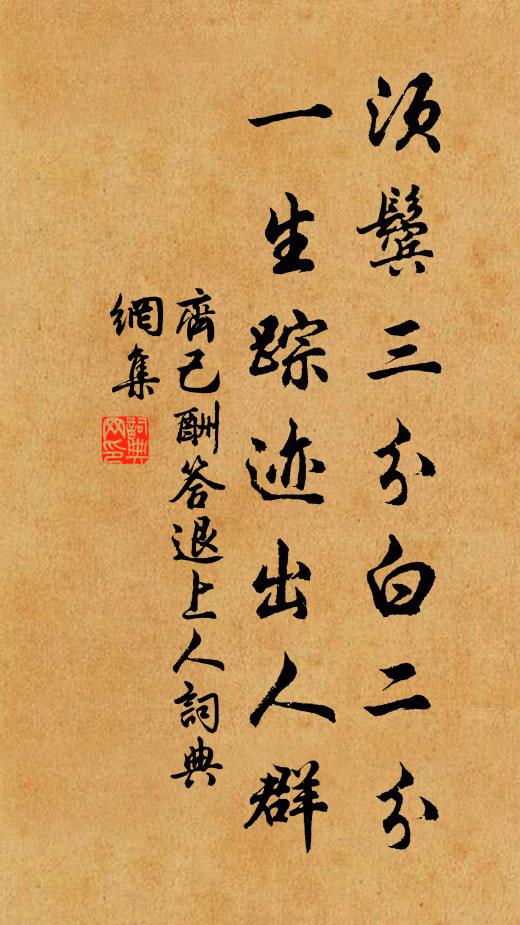 须鬓三分白二分
一生踪迹出人群
齊己酬答退上人詞典
網集
詞典
网印